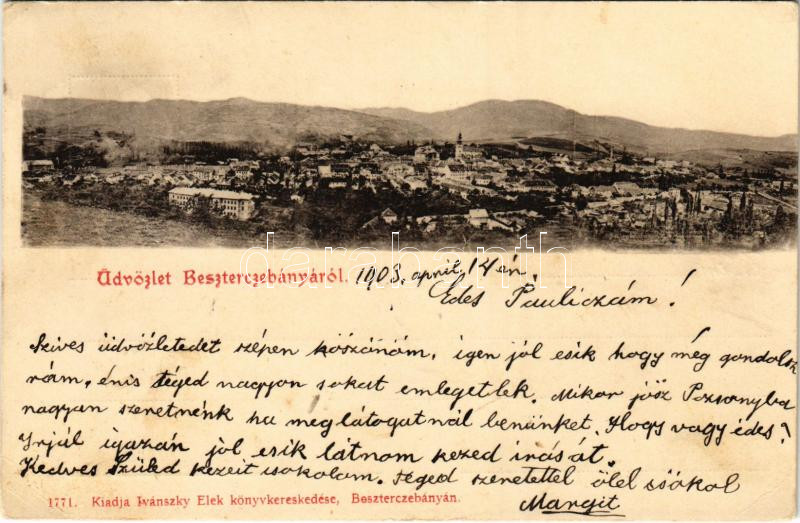 Üdvözlet Beszterczebányáról. 1903. april 14 én.
Édes Pauliczám!
Szives üdvözletedet szépen köszönöm, igen jól esik hogy még gondolsz
rám, énis téged nagyon sokat emlegetlek. Mikor jösz Pozsonyba
nagyon szeretnénk ha meglátogatnál benünket. Hogy vagy édes?
Irjál igazán jól esik látnom kezed irását.
Kedves Szüleid kezeit csokolom. Téged szeretettel ölel csókol
Margit
1771. Kiadja Ivánszky Elek könyvkereskedése, Beszterczebányán.
darabanth.com